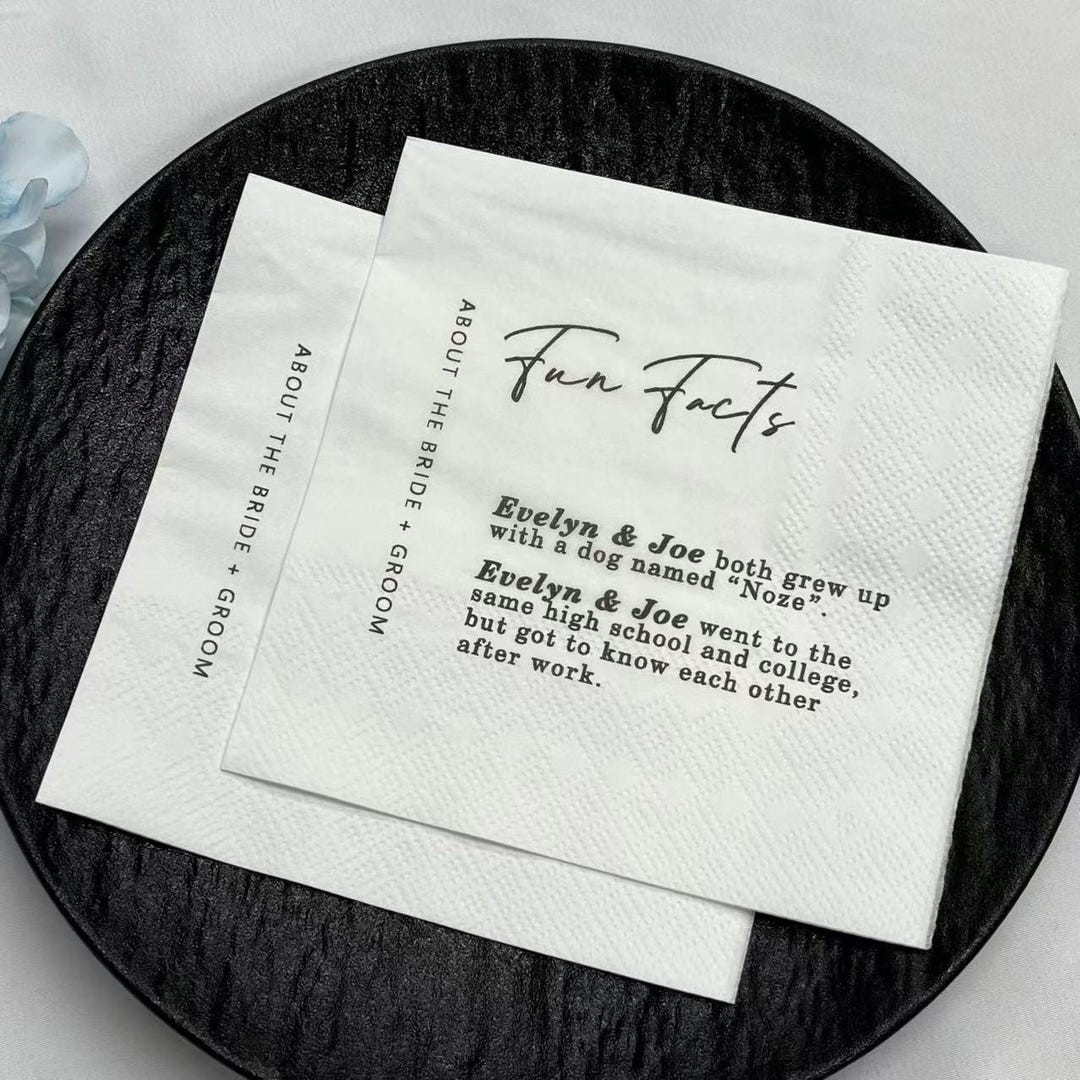 ABOUT THE BRIDE + GROOM
ABOUT THE BRIDE + GROOM
Fun Facts
Evelyn & Joe both grew up
with a dog named “Noze”.
Evelyn & Joe went to the
same high school and college,
but got to know each other
after work.